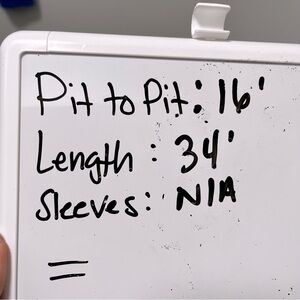 Pit to Pit: 16'
Length: 34'
Sleeves: N/A
=